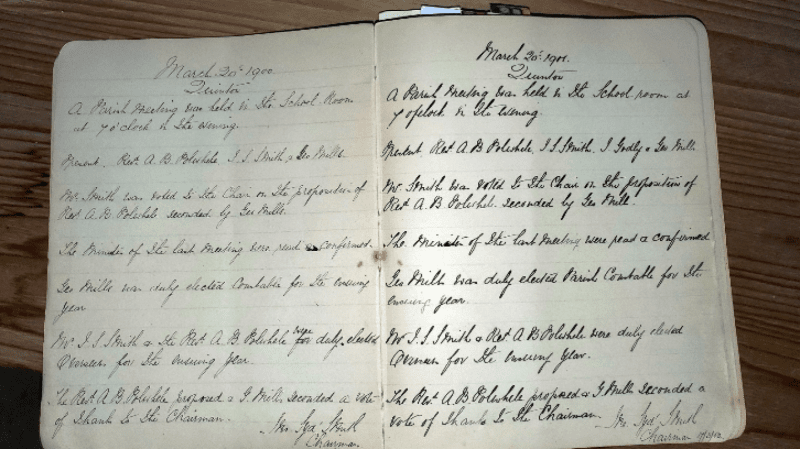 March 20th 1900.
Quinton
A Parish Meeting was held in the School Room
at 7 o'clock in the evening.
Present. Revd A. B. Polwhele J. S. Smith & Geo Mills.
Mr. Smith was voted to the Chair on the proposition of
Revd A. B. Polwhele seconded by Geo Mills.
The Minutes of the last Meeting were read & confirmed.
Geo Mills was duly elected Constable for the ensuing
year
Mr J. S. Smith & the Revd A. B. Polwhele were duly elected
Overseers for the ensuing year.
The Revd A. B. Polwhele proposed & G. Mills seconded a vote
of thanks to the Chairman.
Smith
Chairman
March 20th 1901.
Quinton
A Parish Meeting was held in the School room at
7 o'clock in the evening.
Present. Revd A B Polwhele, J S Smith, J Godly & Geo Mills
Mr Smith was voted to the Chair on the proposition of
Revd A. B. Polwhele. seconded by Geo Mills.
The Minutes of the last Meeting were read & confirmed
Geo Mills was duly elected Parish Constable for the
ensuing year.
Mr J. S. Smith & Revd A B Polwhele were duly elected
Overseers for the ensuing year.
The Revd A. B. Polwhele proposed & G Mills seconded a
vote of thanks to the Chairman.
Smith
Chairman